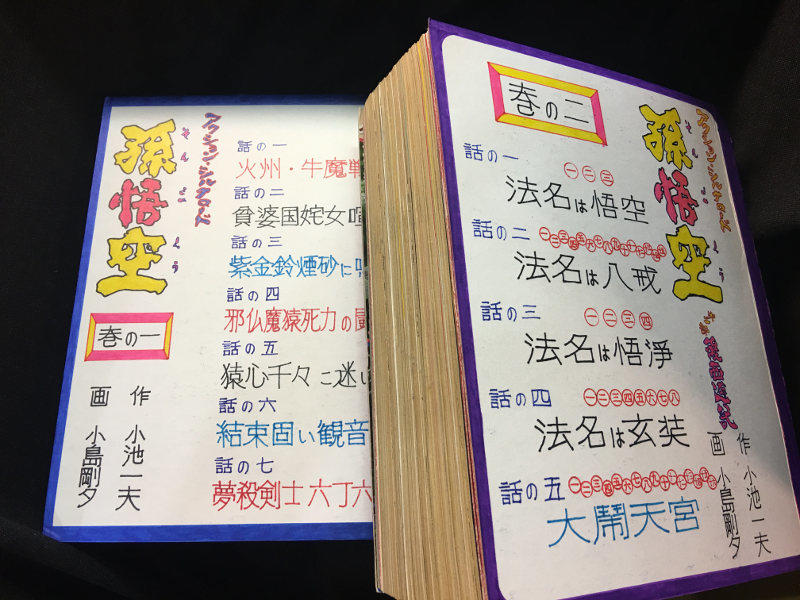 アクション・シルクロード
孫悟空
そんごくう
巻の一
作 小池一夫
画 小島剛夕
話の一
火州・牛魔戦
話の二
貧婆国姹女喧
話の三
紫金鈴煙砂に
話の四
邪仏魔猿死力の
話の五
猿心千々に迷い
話の六
結束固い観音
話の七
夢殺剣士六丁六
アクション・シルクロード
孫悟空
そんごくう
作 小池一夫
画 小島剛夕
巻の二
話の一
一二三
法名は悟空
話の二
法名は八戒
話の三
一二三四
法名は悟浄
話の四
一二三四五六七八
法名は玄装
話の五
大鬧天宮